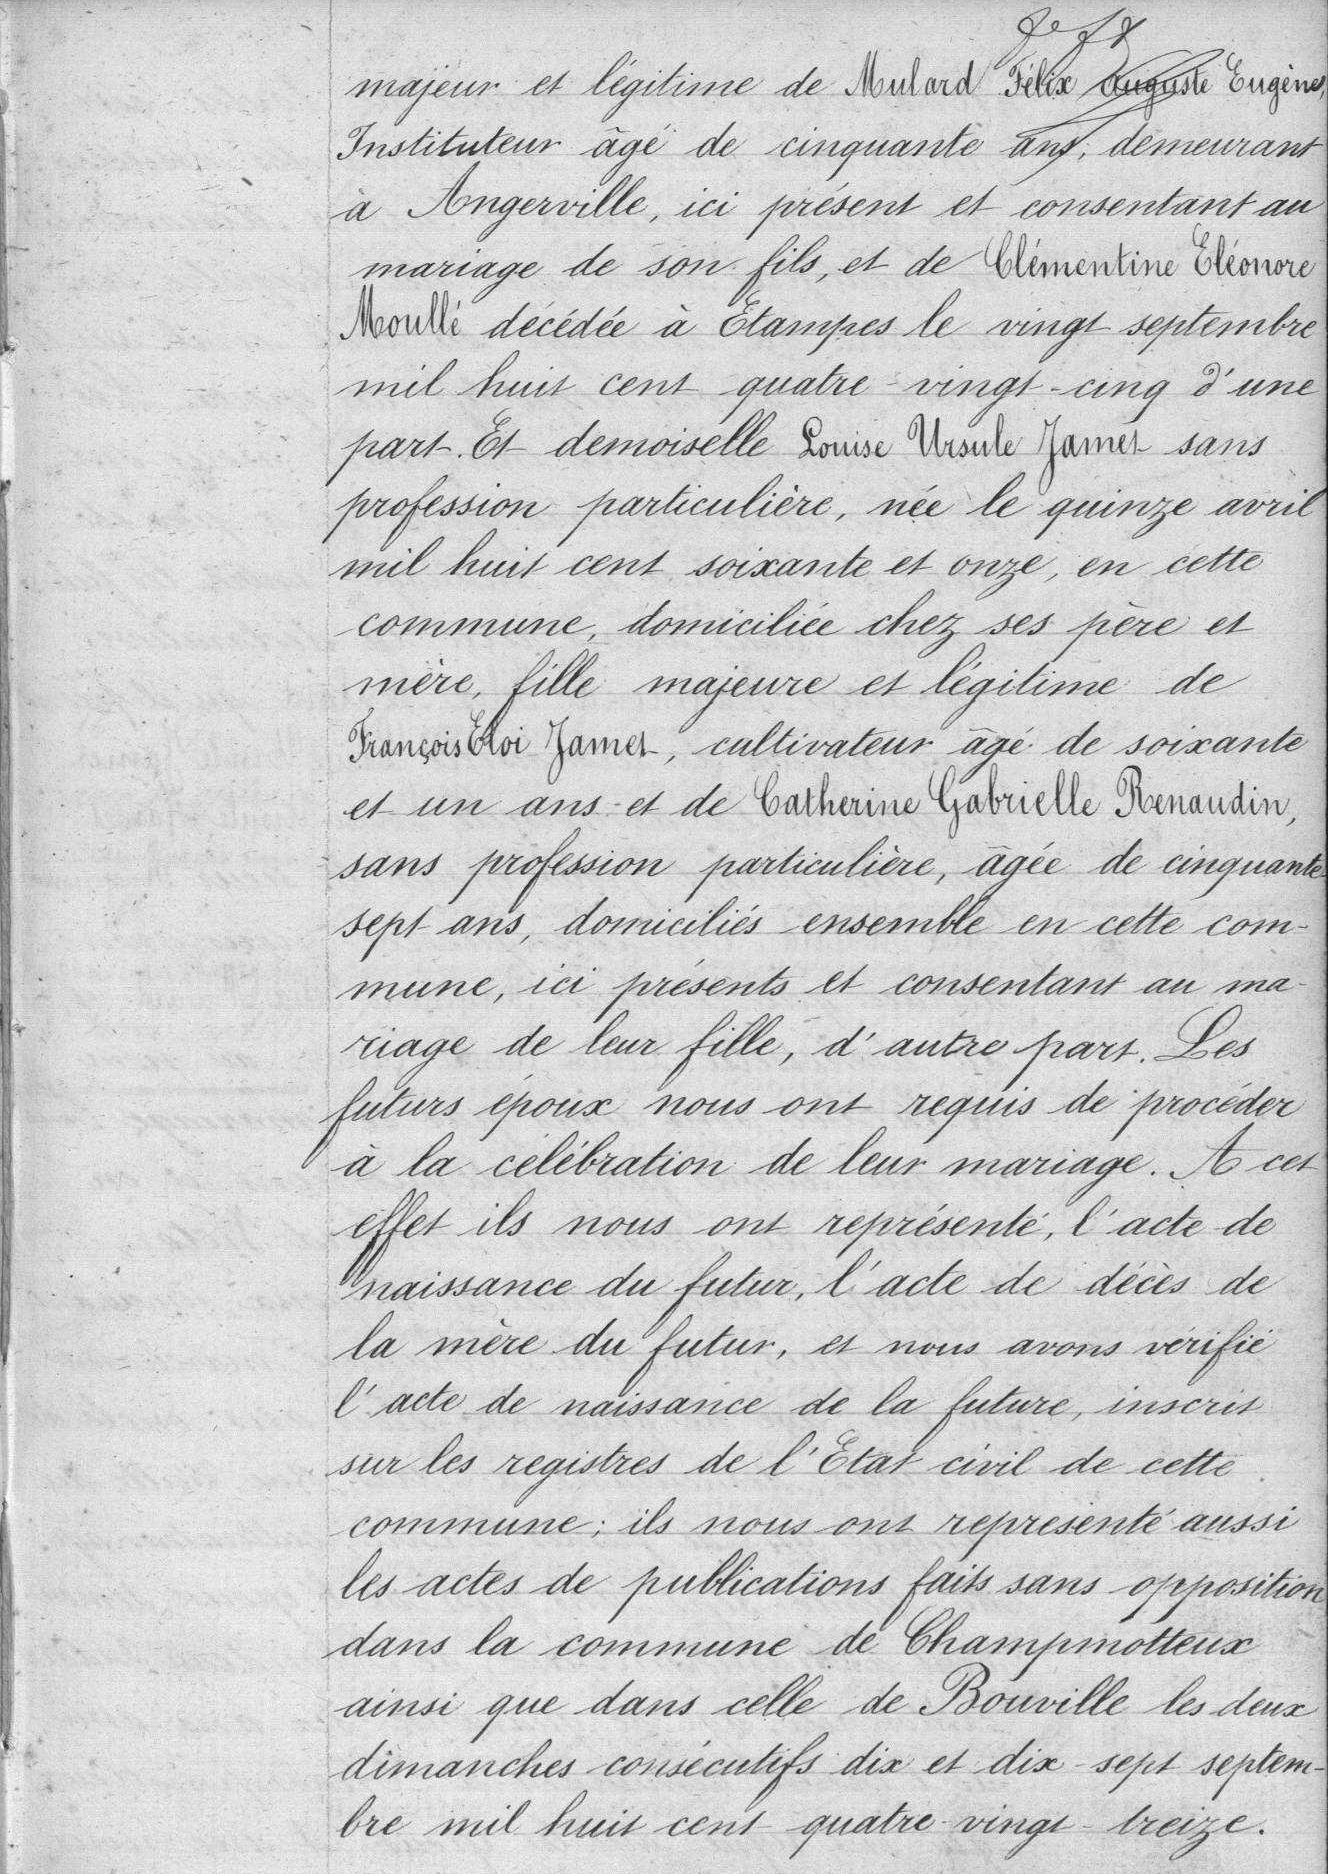 majeur et légitime de Mulard Félix auguste Eugène,
Instituteur âgé de cinquante ans, demeurant
à Angerville, ici présent et consentant au
mariage de son fils, et de Clémentine Eléonore
Moullé décédée à Etampes le vingt septembre
mil huit cent quatre-vingt-cinq d'une
part. Et demoiselle Louise Ursule Jamet sans
profession particulière, née le quinze avril
mil huit cent soixante et onze, en cette
commune, domiciliée chez ses père et
mère, fille majeure et légitime de
François Eloi Jamet, cultivateur âgé de soixante
et un ans et de Catherine Gabrielle Renaudin,
sans profession particulière, âgée de cinquante-
sept ans, domiciliés ensemble en cette com-
mune, ici présents et consentant au ma-
riage de leur fille, d'autre part. Les
futurs époux nous ont requis de procéder
à la célébration de leur mariage. A cet
effet ils nous ont représenté, l'acte de
naissance du futur, l'acte de décès de
la mère du futur, et nous avons vérifié
l'acte de naissance de la future, inscrit
sur les registres de l'Etat civil de cette
commune; ils nous ont représenté aussi
les actes de publications faits sans opposition
dans la commune de Champmotteux
ainsi que dans celle de Bouville les deux
dimanches consécutifs dix et dix-sept septem-
bre mil huit cent quatre-vingt-treize.